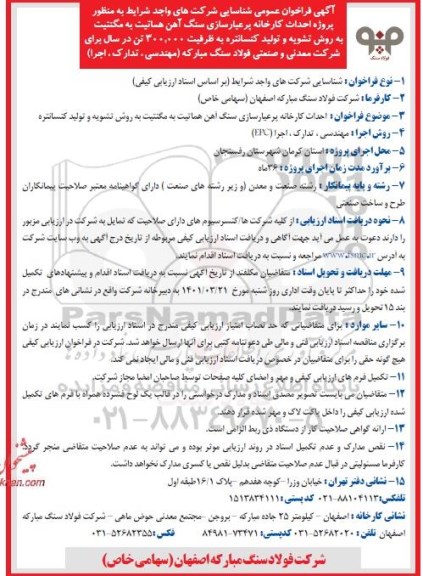 آگهی فراخوان عمومی شناسایی شرکت های واجد شرایط به منظور
پروژه احداث کارخانه پرعیارسازی سنگ آهن هماتیت به مگنتیت
به روش تشویه و تولید کنسانتره به ظرفیت ۳۰۰،۰۰۰ تن در سال برای
شرکت معدنی و صنعتی فولاد سنگ مبارکه (مهندسی ، تدارک ، اجرا)
فولاد سنگ
۱- نوع فراخوان : شناسایی شرکت های واجد شرایط (بر اساس اسناد ارزیابی کیفی)
۲- کارفرما : شرکت فولاد سنگ مبارکه اصفهان (سهامی خاص)
۳- موضوع فراخوان : احداث کارخانه پرعیارسازی سنگ آهن هماتیت به مگنتیت به روش تشویه و تولید کنسانتره
۴- روش اجرا : مهندسی ، تدارک ، اجرا (EPC)
۵- محل اجرای پروژه : استان کرمان شهرستان رفسنجان
۶- برآورد مدت زمان اجرای پروژه : ۳۶ماه
۷- رشته و پایه پیمانکار : رشته صنعت و معدن (و زیر رشته های صنعت ) دارای گواهینامه معتبر صلاحیت پیمانکاران
طرح و ساخت صنعتی
۸- نحوه دریافت اسناد ارزیابی : از کلیه شرکت ها/کنسرسیوم های دارای صلاحیت که تمایل به شرکت در ارزیابی مزبور
را دارند دعوت به عمل می آید جهت آگاهی و دریافت اسناد ارزیابی کیفی مربوطه از تاریخ درج آگهی به وب سایت شرکت
به آدرس مراجعه و نسبت به دریافت اسناد اقدام نمایند.
۹- مهلت دریافت و تحویل اسناد : متقاضیان مکلفند از تاریخ آگهی نسبت به دریافت اسناد اقدام و پیشنهادهای تکمیل
شده خود را حداکثر تا پایان وقت اداری روز شنبه مورخ ۱۴۰۱/۰۳/۲۱ به دبیرخانه شرکت واقع در نشانی های مندرج در
بند ۱۵ تحویل و رسید دریافت نمایند.
۱۰- سایر موارد : برای متقاضیانی که حد نصاب امتیاز ارزیابی کیفی مندرج در اسناد ارزیابی را کسب نمایند در زمان
برگزاری مناقصه اسناد ارزیابی فنی و مالی طی دعوتنامه کتبی برای آنها ارسال خواهد شد. شرکت در فراخوان ارزیابی کیفی
هیچ گونه حقی را برای متقاضیان در خصوص دریافت اسناد ارزیابی فنی و مالی ایجاد نمی کند.
۱۱- تکمیل فرم های ارزیابی کیفی و مهر و امضای کلیه صفحات توسط صاحبان امضا مجاز شرکت.
۱۲- متقاضیان می بایست تصویر مصدق اسناد و مدارک درخواستی را در قالب یک لوح فشرده همراه با فرم های تکمیل
شده ارزیابی کیفی را داخل پاکت لاک و مهر شده قرار دهند.
۱۳- ارائه گواهی صلاحیت کار از دستگاه ذی ربط الزامی است.
۱۴- نقص مدارک و عدم تکمیل اسناد در روند ارزیابی موثر بوده و می تواند به عدم صلاحیت متقاضی منجر گردد.
کارفرما مسئولیتی در قبال عدم صلاحیت متقاضی بدلیل نقص یا کسری مدارک نخواهد داشت.
۱۵- نشانی دفتر تهران : خیابان وزرا -کوچه هفدهم -پلاک ۱۶/۱طبقه اول
تلفکس:۸۸۱۰۴۱۱۳-۰۲۱ کدپستی: ۱۵۱۳۸۳۴۱۱۱
نشانی کارخانه : اصفهان - کیلومتر ۲۵ جاده مبارکه - بروجن -مجتمع معدنی حوض ماهی - شرکت فولاد سنگ مبارکه
اصفهان تلفن: ۵۲۶۸۲۰۲۰-۰۳۱ کدپستی: ۷۳۴۷۱-۸۴۹۸۱ فکس:۵۲۶۸۲۳۵۵-۰۳۱
شرکت فولاد سنگ مبارکه اصفهان (سهامی خاص)
ParsNamadData
۰۲۱-۸۸۳۴۹۶۷۰